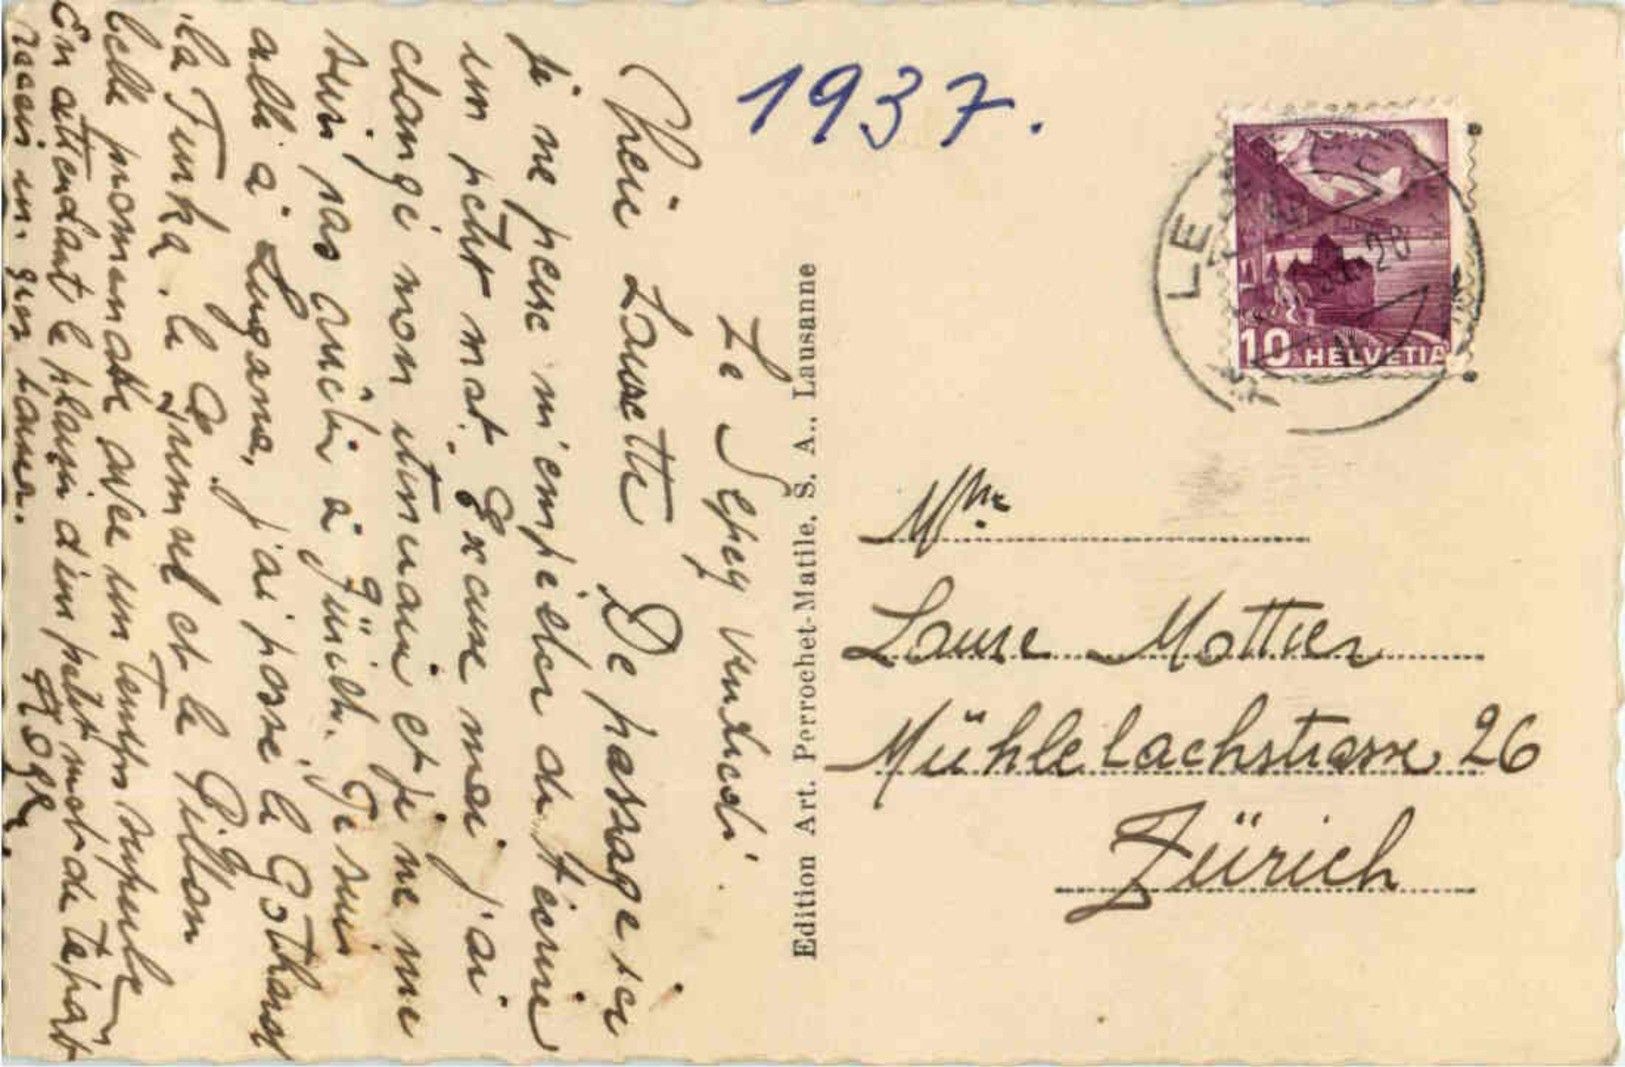 Le Sepey vendredi.
Chère Laurette De passage ici
je ne peux m'empêcher de t'écrire
un petit mot. Excuse moi j'ai
changé mon itinéraire et je ne me
suis pas arrêté à Zürich. Je suis
allé à Lugano, j'ai passé le Gothard
la Furka, le Grimsel et le Pillon
belle promenade avec un temps superbe
En attendant le plaisir d'un petit mot de ta part
reçois un gros baiser.
Roger
1937.
LE
10 HELVETIA
Edition Art. Perrochet-Matile, S. A., Lausanne
Mme
Laure Mottier
Mühlebachstrasse 26
Zürich